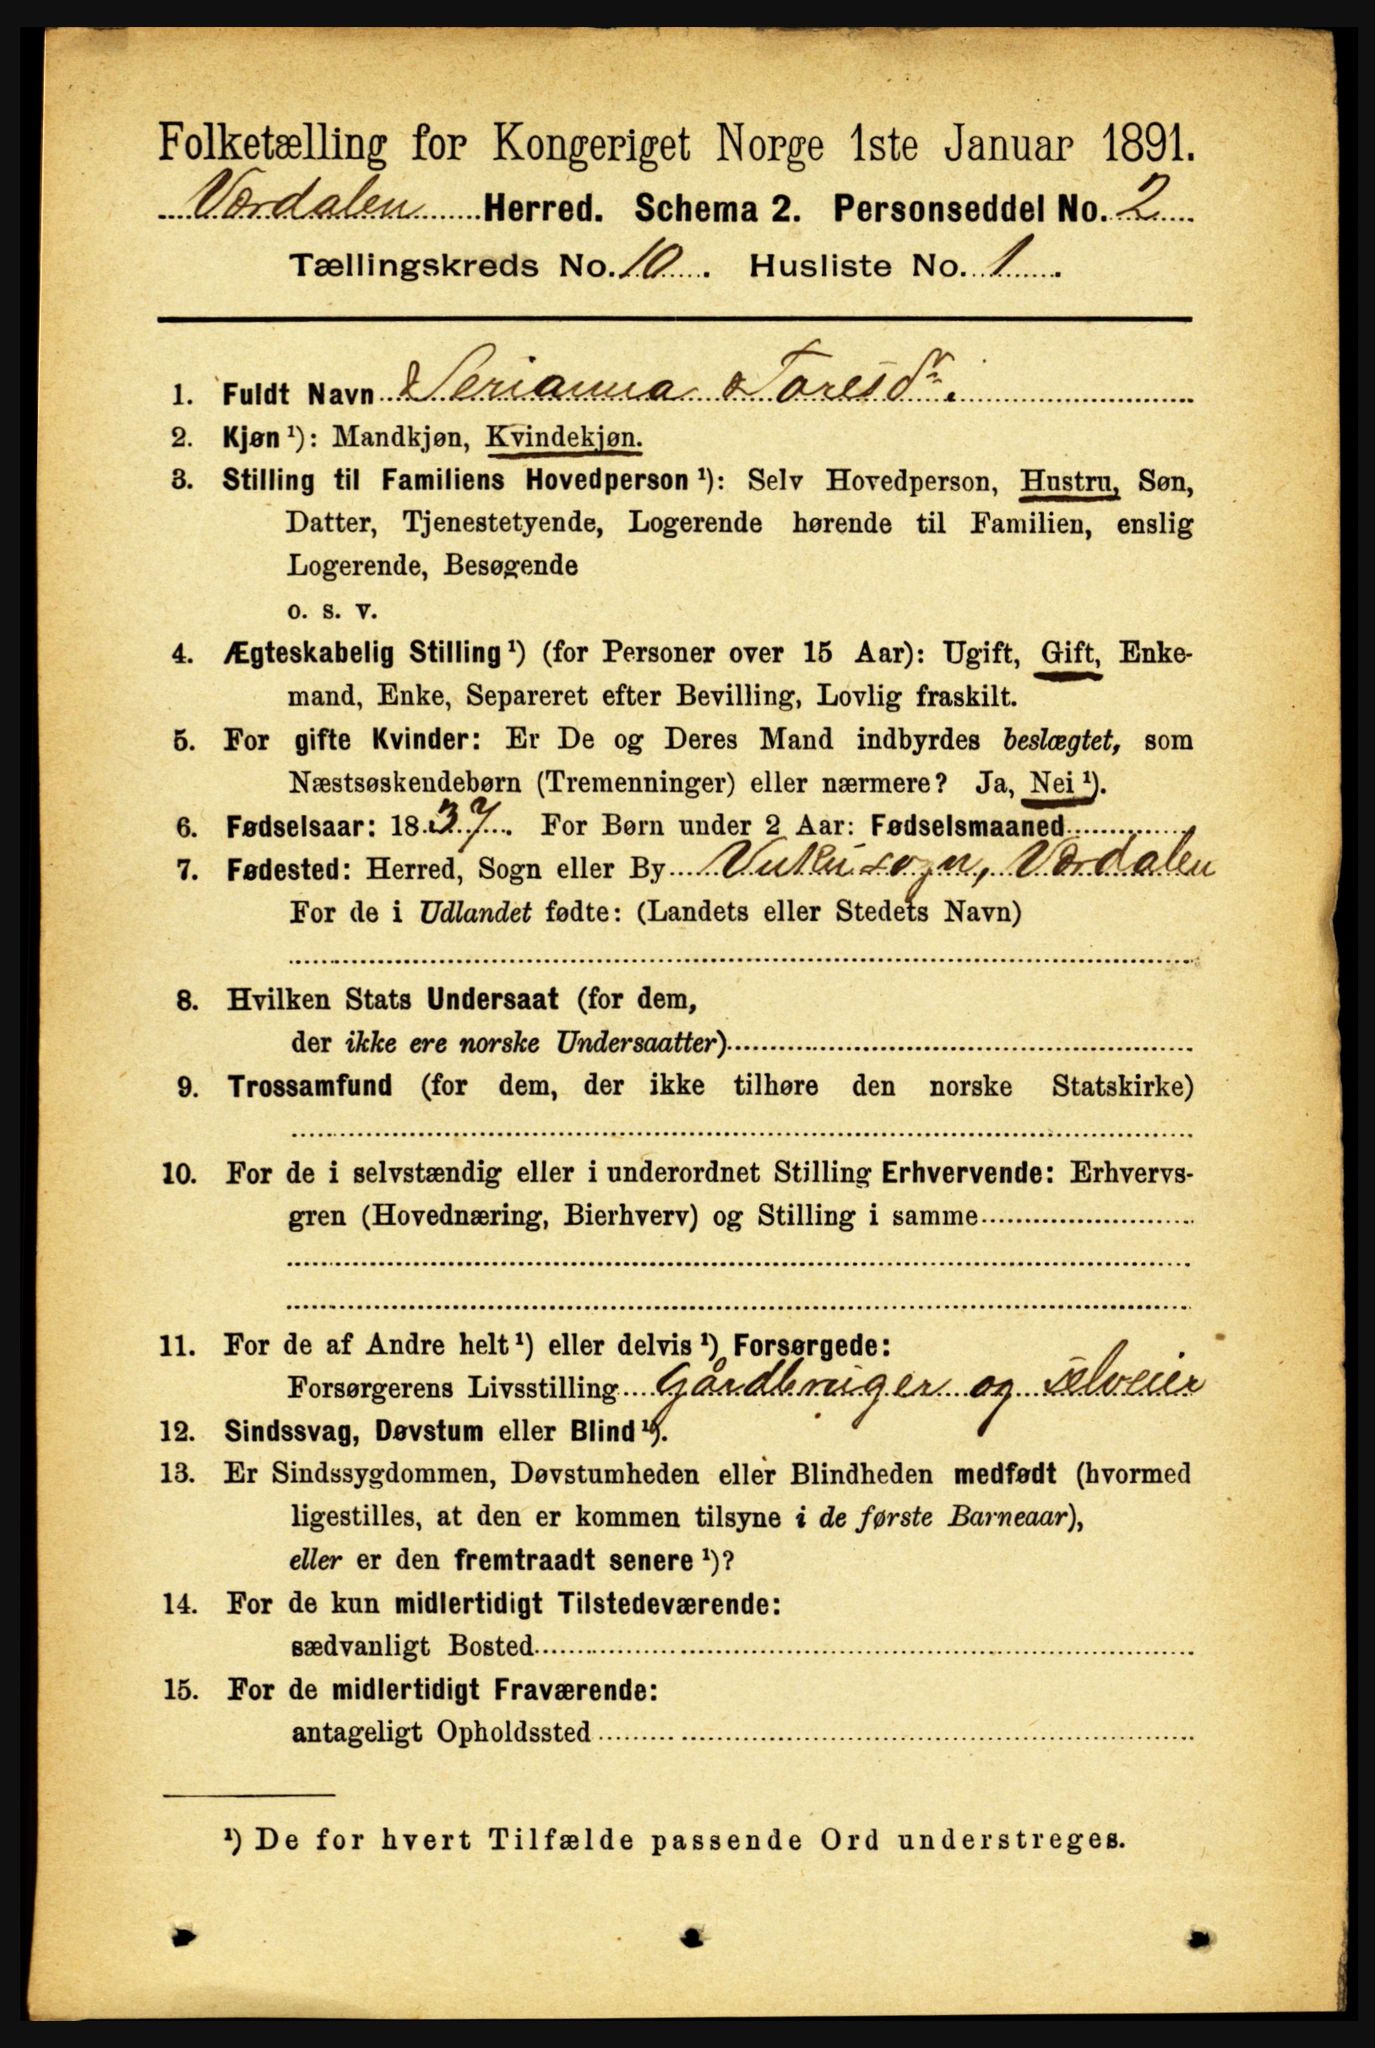 Folketælling for Kongeriget Norge 1ste Januar 1891.
Værdalen Herred. Schema 2. Personseddel No. 2
Tællingskreds No. 10. Husliste No. 1.
1. Fuldt Navn Serianna Toresdr.
2. Kjøn ¹): Mandkjøn, Kvindekjøn.
3. Stilling til Familiens Hovedperson ¹): Selv Hovedperson, Hustru, Søn,
Datter, Tjenestetyende, Logerende hørende til Familien, enslig
Logerende, Besøgende
o. s. v.
4. Ægteskabelig Stilling ¹) (for Personer over 15 Aar): Ugift, Gift, Enke-
mand, Enke, Separeret efter Bevilling, Lovlig fraskilt.
5. For gifte Kvinder: Er De og Deres Mand indbyrdes beslægtet, som
Næstsøskendebørn (Tremenninger) eller nærmere? Ja, Nei ¹).
6. Fødselsaar: 1837. For Børn under 2 Aar: Fødselsmaaned
7. Fødested: Herred, Sogn eller By Vuku sogn, Værdalen
For de i Udlandet fødte: (Landets eller Stedets Navn)
8. Hvilken Stats Undersaat (for dem,
der ikke ere norske Undersaatter)
9. Trossamfund (for dem, der ikke tilhøre den norske Statskirke)
10. For de i selvstændig eller i underordnet Stilling Erhvervende: Erhvervs-
gren (Hovednæring, Bierhverv) og Stilling i samme
11. For de af Andre helt ¹) eller delvis ¹) Forsørgede:
Forsørgerens Livsstilling Gårdbruger og selveier
12. Sindssvag, Døvstum eller Blind ¹).
13. Er Sindssygdommen, Døvstumheden eller Blindheden medfødt (hvormed
ligestilles, at den er kommen tilsyne i de første Barneaar),
eller er den fremtraadt senere ¹)?
14. For de kun midlertidigt Tilstedeværende:
sædvanligt Bosted
15. For de midlertidigt Fraværende:
antageligt Opholdssted
¹) De for hvert Tilfælde passende Ord understreges.